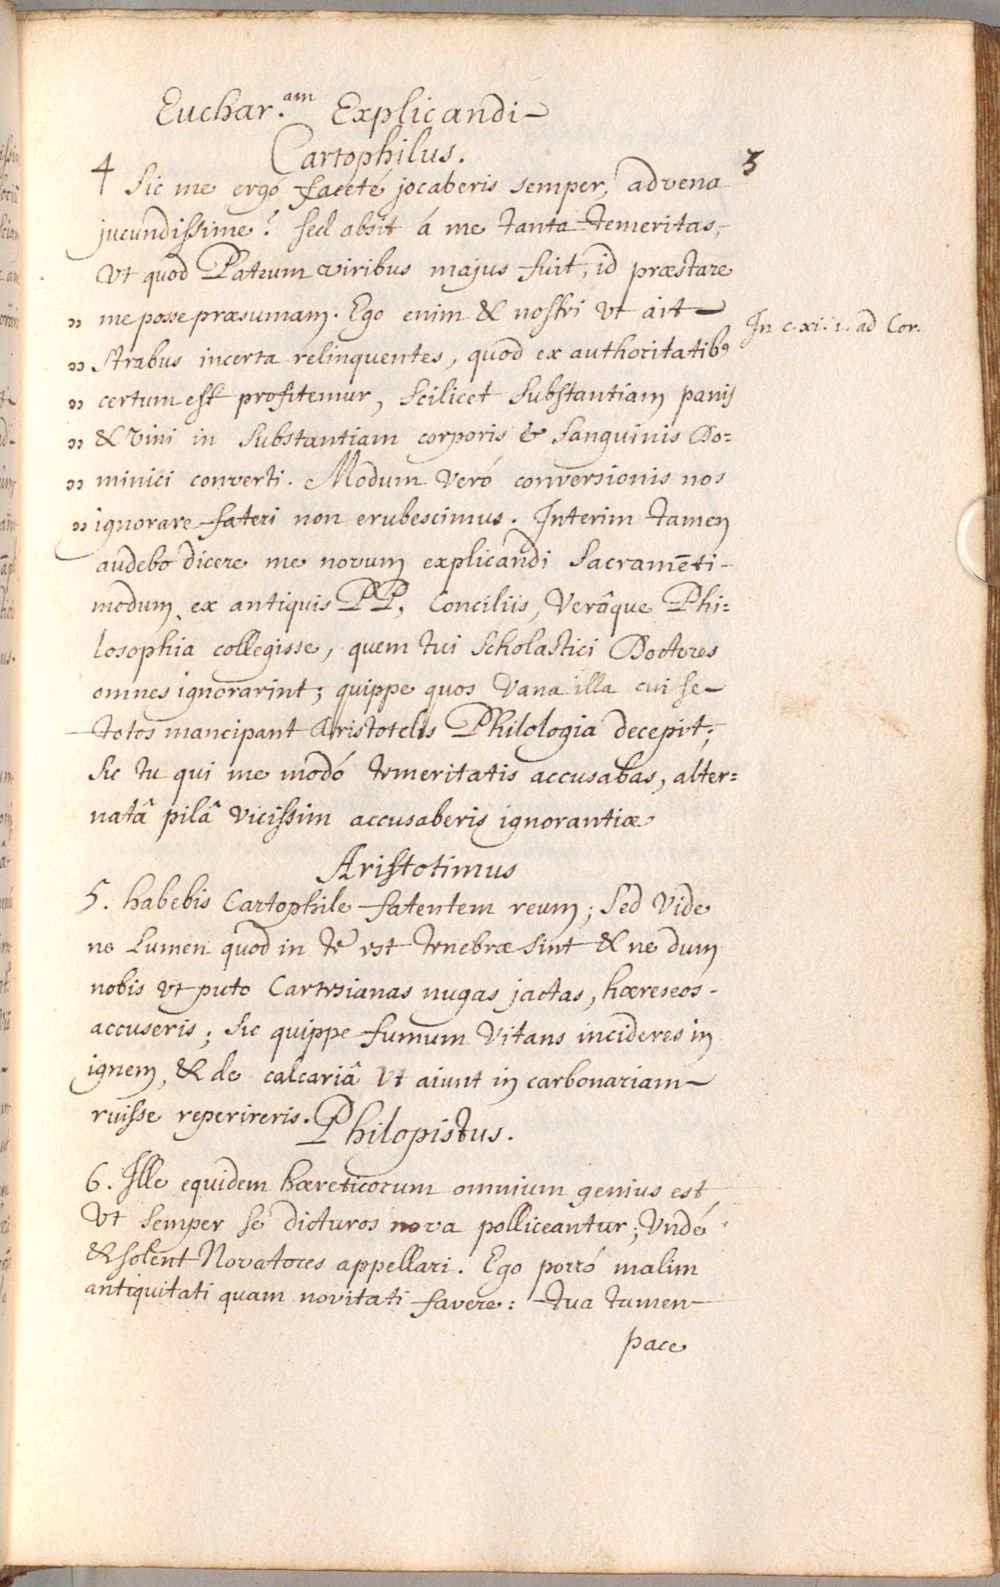 Euchar.am Explicandi
Cartophilus.
3
4 Sic me ergo faceté jocaberis semper, advena
jucundissime? sed absit á me tanta temeritas,
Vt quod Patrum viribus majus fuit, id præstare
„ me posse præsumam. Ego enim & nostri vt ait
In c. xi. 1. ad Cor.
„ Strabus incerta relinquentes, quod ex authoritatib9
„ certum est profitemur, Scilicet Substantiam panis
„ & Vini in Substantiam corporis & Sanguinis Do=
„ minici converti. Modum Veró conversionis nos
„ ignorare fateri non erubescimus. Interim tamen
audebo dicere me novum explicandi Sacramēti
modum ex antiquis PP, Conciliis, Verâque Phi=
losophia collegisse, quem tui Scholastici Doctores
omnes ignorarint; quippe quos Vana illa cui se
totos mancipant Aristotelis Philologia decepit;
Sic tu qui me modó temeritatis accusabas, alter=
natâ pilâ Vicissim accusaberis ignorantiæ
Aristotimus
5. habebis Cartophile fatentem reum; Sed Vide
ne Lumen quod in te est tenebræ sint & ne dum
nobis vt puto Cartesianas nugas jactas, hæreseos
accuseris; Sic quippe fumum Vitans incideres in
ignem, & de calcariâ Vt aiunt in carbonariam
ruisse reperireris.
Philopistus.
6. Ille equidem hæreticorum omnium genius est
Vt Semper se dicturos nova polliceantur; Vndé
& solent Novatores appellari. Ego porró malim
antiquitati quam novitati favere: tua tamen
pace